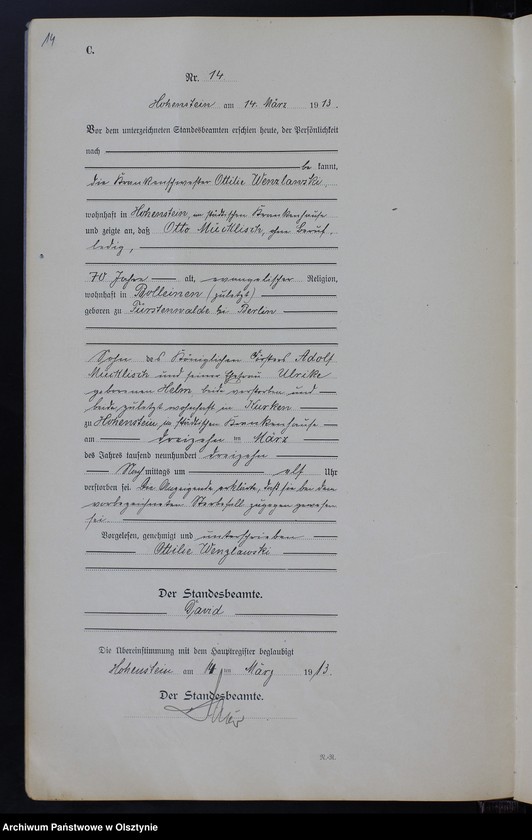 14
C.
Nr. 14
Hohenstein am 14. März 1913.
Vor dem unterzeichneten Standesbeamten erschien heute, der Persönlichkeit
nach
be kannt,
die Krankenschwester Ottilie Wenzlawski,
wohnhaft in Hohenstein, im städtischen Krankenhause
und zeigte an, daß Otto Mücklisch, ohne Beruf,
ledig,
70 Jahre alt, evangelischer Religion,
wohnhaft in (zuletzt)
geboren zu Fürstenwalde bei Berlin
Sohn des Königlichen Försters Adolf
Mücklisch und seiner Ehefrau Ulrike
geborenen Helm, beide verstorben und
beide zuletzt wohnhaft in Kurken
zu Hohenstein, im städtischen Krankenhause
am dreizehn ten März
des Jahres tausend neunhundert dreizehn
Nach mittags um elf Uhr
verstorben sei. Die Anzeigende erklärte, daß sie bei dem
vorbezeichneten Sterbefall zugegen gewesen
sei.
Vorgelesen, genehmigt und unterschrieben
Ottilie Wenzlawski
Der Standesbeamte.
David
Die Übereinstimmung mit dem Hauptregister beglaubigt
Hohenstein am 14 ten März 1913.
Der Standesbeamte.
R.-R.
Archiwum Państwowe w Olsztynie